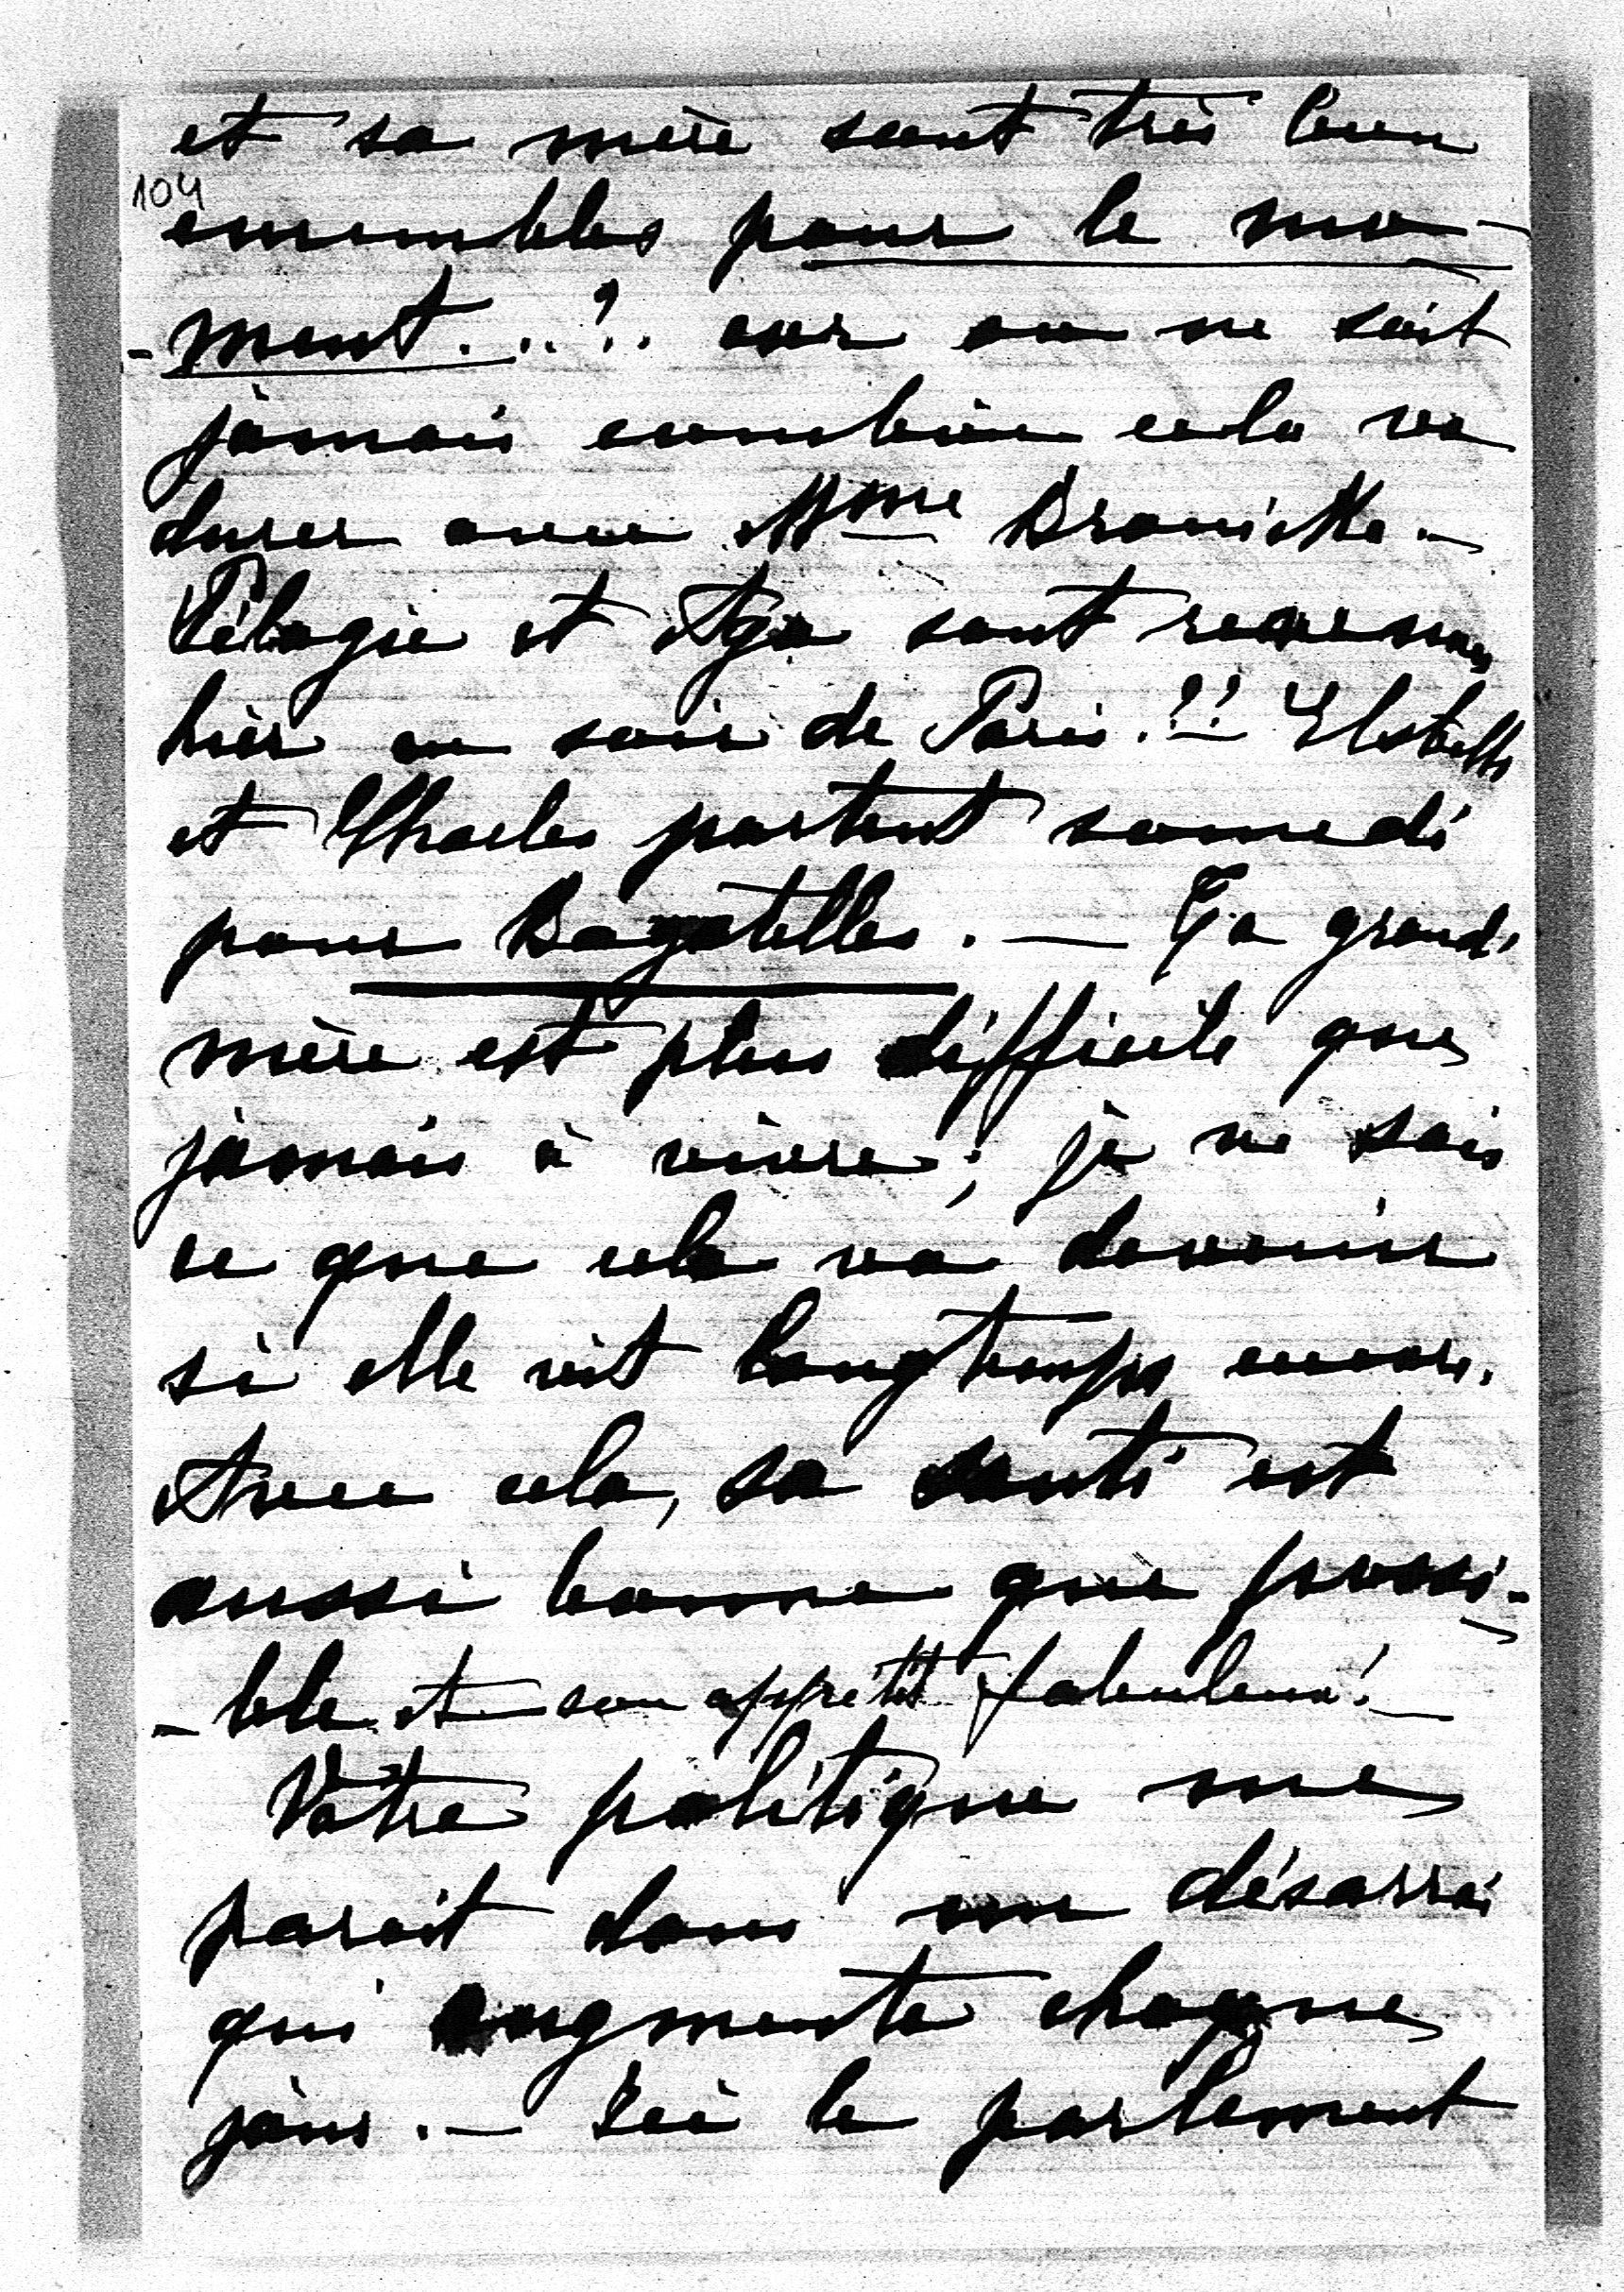 et sa mère sont très bien
104
ensembles pour le mo-
-ment...!.. car on ne sait
jamais combien cela va
durer avec Mme Branicka.-
Pélagie et Aga sont revenues
hier au soir de Paris.!! Elsbeth
et Charles partent samedi
pour Bagatelles. — Ta grand'
mère est plus difficile que
jamais à vivre; je ne sais
ce que cela va devenir
si elle vit longtemps encore.
Avec cela, sa santé est
aussi bonne que possi-
-ble et son appétit fabuleux! —
Votre politique me
parait dans un désarroi
qui augmente chaque
jour. — Ici le parlement